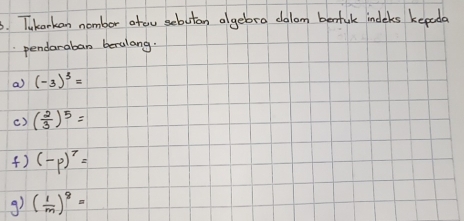 3. Tukarkan nombor atau sebutan algebra dalam bentuk indeks kepada
pendaraban berulang.
a) (-3)³ =
c) (2/3)⁵ =
f) (-p)⁷ =
g) (1/m)⁸ =